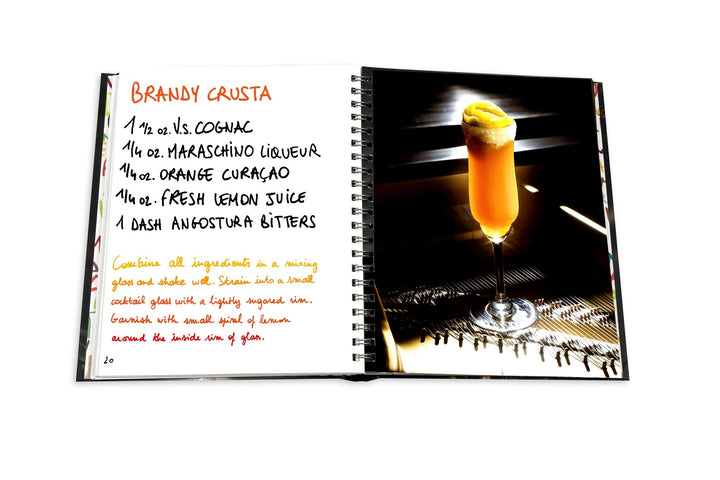 BRANDY CRUSTA
1 1/2 oz. V.S. COGNAC
1/4 oz. MARASCHINO LIQUEUR
1/4 oz. ORANGE CURAÇAO
1/4 oz. FRESH LEMON JUICE
1 DASH ANGOSTURA BITTERS
Combine all ingredients in a mixing
glass and shake well. Strain into a small
cocktail glass with a lightly sugared rim.
Garnish with small spiral of lemon
around the inside rim of glass.
20